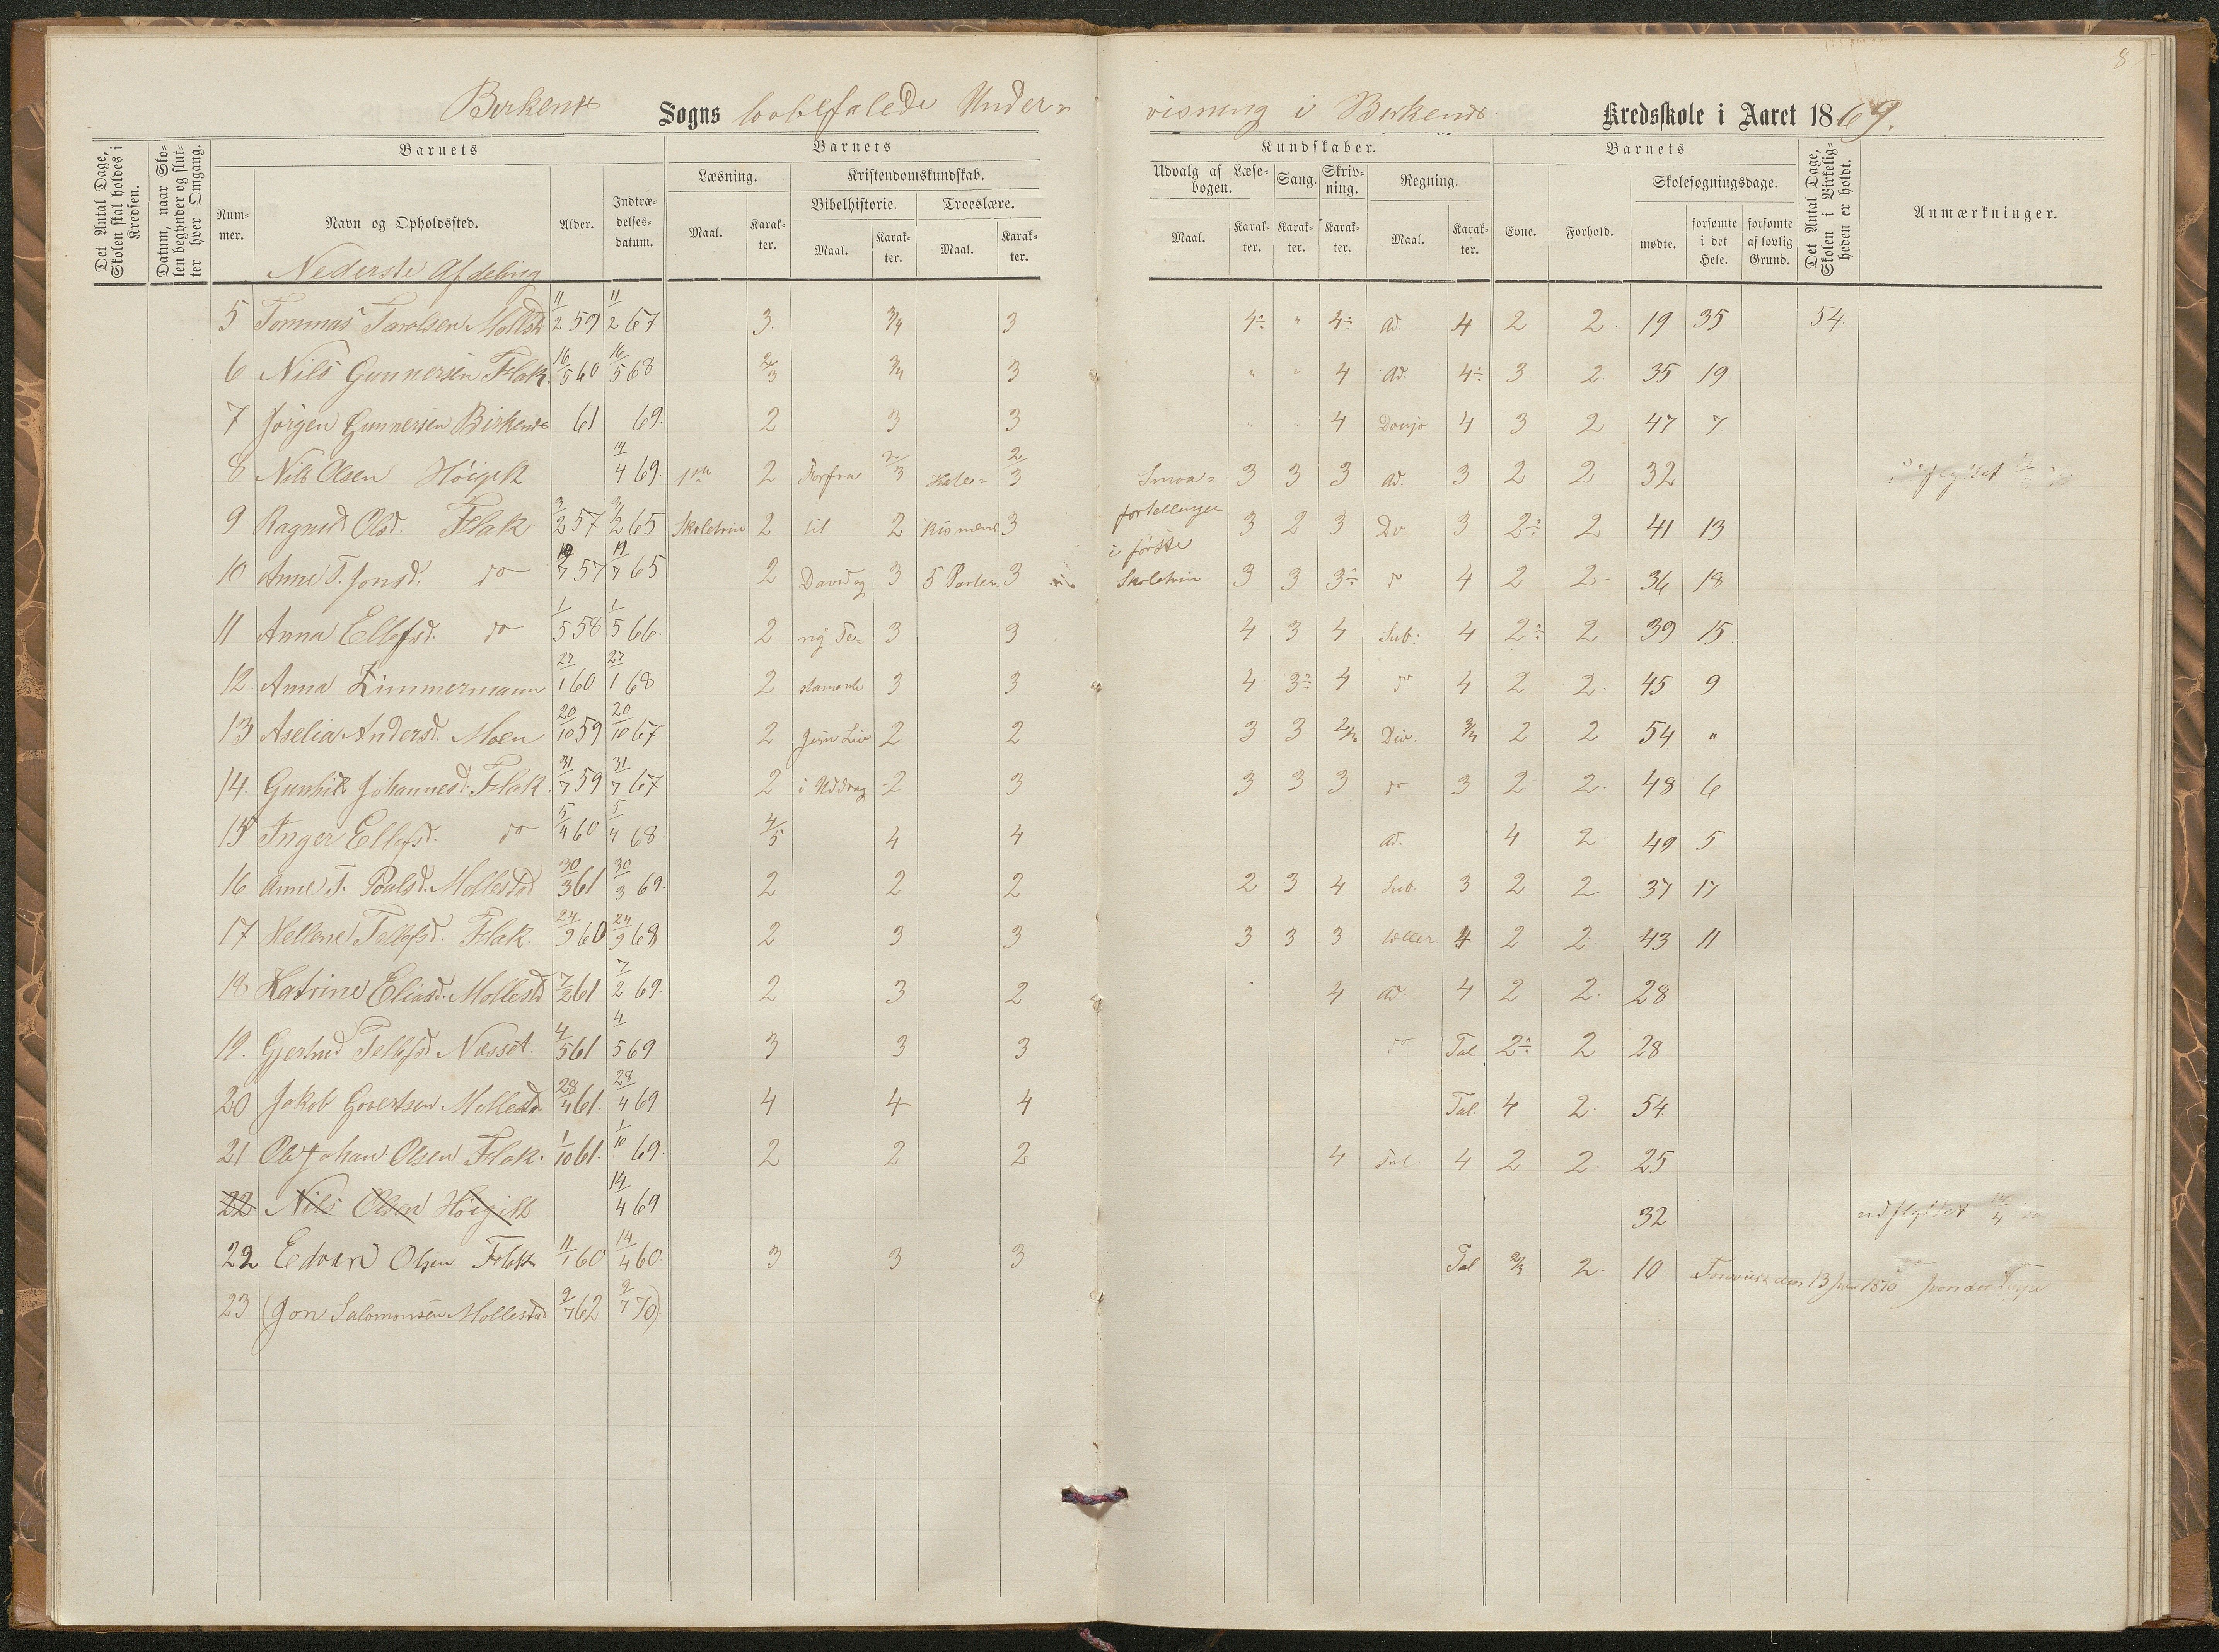 8
Birkenes Sogns lovbefalede Under-
visning i Birkenes Kredsskole i Aaret 1869.
Det Antal Dage, Skolen skal holdes i Kredsen.
Datum, naar Skolen begynder og slutter hver Omgang.
Barnets
Barnets
Kundskaber.
Barnets
Det Antal Dage, Skolen i Virkeligheden er holdt.
Anmærkninger.
Nummer.
Navn og Opholdssted.
Alder.
Indtrædelsesdatum.
Læsning.
Kristendomskundskab.
Udvalg af Læsebogen.
Sang.
Skrivning.
Regning.
Evne.
Forhold.
Skolesøgningsdage.
Bibelhistorie.
Troeslære.
Maal.
Karakter.
Maal.
Karakter.
Maal.
Karakter.
Maal.
Karakter.
Karakter.
Karakter.
Maal.
Karakter.
mødte.
forsømte i det Hele.
forsømte af lovlig Grund.
Nederste Afdeling
5 Tommas Tarolsen Mollest 11/2 59 11/2 67 3. 3/4 3 4÷ " 4÷ Ad. 4 2 2. 19 35 54.
6 Nils Gunnersen Flak. 16/5 60 16/5 68 2/3 3/4 3 " " 4 Ad. 4÷ 3 2. 35 19.
7 Jørgen Gunnersen Birkenes 61 69. 2 3 3 " " 4 4 3 2 47 7
8 Nils Olsen Høigilt 14/4 69. 1ste 2 Forfra 2/3 Kate- 2/3 Smaa- 3 3 3 Ad. 3 2 2 32
9 Ragnild Olsd. Flak 3/2 57 3/2 65 Skoletrin 2 til 2 kismens 3 fortellinger 3 2 3 Do 3 2÷ 2 41 13
i første
10 Anne T. Jonsd. do 19/7 57 19/7 65 2 David og 3 5 Parter 3 Skoletrin 3 3 3÷ do 4 2 2. 36 18
11 Anna Ellefsd. do 1/5 58 1/5 66. 2 ny Te- 3 3 4 3 4 Sub. 4 2÷ 2 39 15
12 Anna Zimmermann 27/1 60 27/1 68 2 stamente 3 3 4 3÷ 4 do 4 2 2. 45 9
13 Aselia Andersd. Moen 20/10 59 20/10 67 2 Jesu Liv 2 2 3 3 2/3 Div. 3/4 2 2 54 "
14. Gunhild Johannesd. Flak. 31/7 59 31/7 67 2 i Uddrag 2 3 3 3 3 do 3 2 2. 48 6
15 Inger Ellefsd. do 5/4 60 5/4 68 4/5 4 4 Ad. 4 2 49 5
16 Anne T. Poulsd. Mollestad 30/3 61 30/3 69. 2 2 2 2 3 4 Sub. 3 2 2. 37 17
17 Hellene Tellefsd. Flak. 24/9 60 24/9 68 2 3 3 3 3 3 4 2 2. 43 11
18 Katrine Eliasd. Mollestd 7/2 61 7/2 69. 2 3 2 4 Ad. 4 2 2. 28
19. Gjertrud Tellefsd Næsset. 4/5 61 4/5 69 3 3 3 do Tal 2÷ 2 28
20 Jakob Govertsen Mollestad 28/4 61. 28/4 69 4 4 4 Tal. 4 2. 54.
21 Ole Johan Olsen Flak. 1/10 61. 1/10 69. 2 2 2 4 Tal 4 2 2. 25
22 Nils Olsen Høigilt 14/4 69 32 udflyttet 14/4
22 Edvard Olsen Flak 11/1 60 14/4 60. 3 3 3 Tal 2/3 2. 10 den 13 Juni 1870
23 (Jon Salomonsen Mollestad 9/7 62 9/7 70)